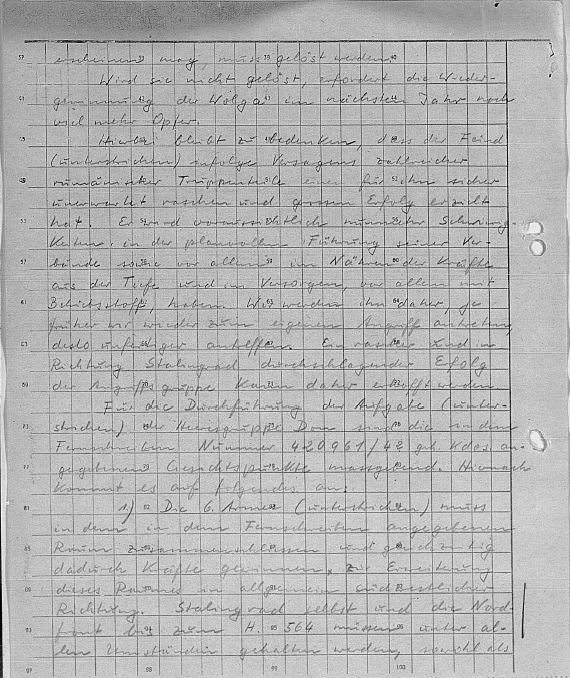 erscheinen mag, muss gelöst werden.
Wird sie nicht gelöst, erfordert die Wieder-
gewinnung der Wolga im nächsten Jahr noch
viel mehr Opfer.
Hierbei bleibt zu bedenken, dass der Feind
(unterstrichen) infolge Versagens zahlreicher
rumänischer Truppenteile einen für ihn sicher
unerwartet raschen und grossen Erfolg erzielt
hat. Er wird voraussichtlich nunmehr Schwierig-
keiten in der planvollen Führung seiner Ver-
bände sowie vor allem im Nähren der Kräfte
aus der Tiefe und im Versorgen, vor allem mit
Betriebsstoff, haben. Wir werden ihn daher, je
früher wir wieder zum eigenen Angriff antreten,
desto unfertiger antreffen. Ein rascher und in
Richtung Stalingrad durchschlagender Erfolg
der Angriffsgruppe kann daher erhofft werden.
Für die Durchführung der Aufgabe (unter-
strichen) der Heeresgruppe Don sind die in dem
Fernschreiben Nummer 420961/42 geh. Kdos. an-
gegebenen Gesichtspunkte massgebend. Hiernach
kommt es auf folgendes an:
1) Die 6. Armee (unterstrichen) muss
in dem in dem Fernschreiben angegebenen
Raum zusammenschliessen und gleichzeitig
dadurch Kräfte gewinnen, zur Erweiterung
dieses Raumes in allgemein südwestlicher
Richtung. Stalingrad selbst und die Nord-
front bis zum H. 564 müssen unter al-
len Umständen gehalten werden, sowohl als